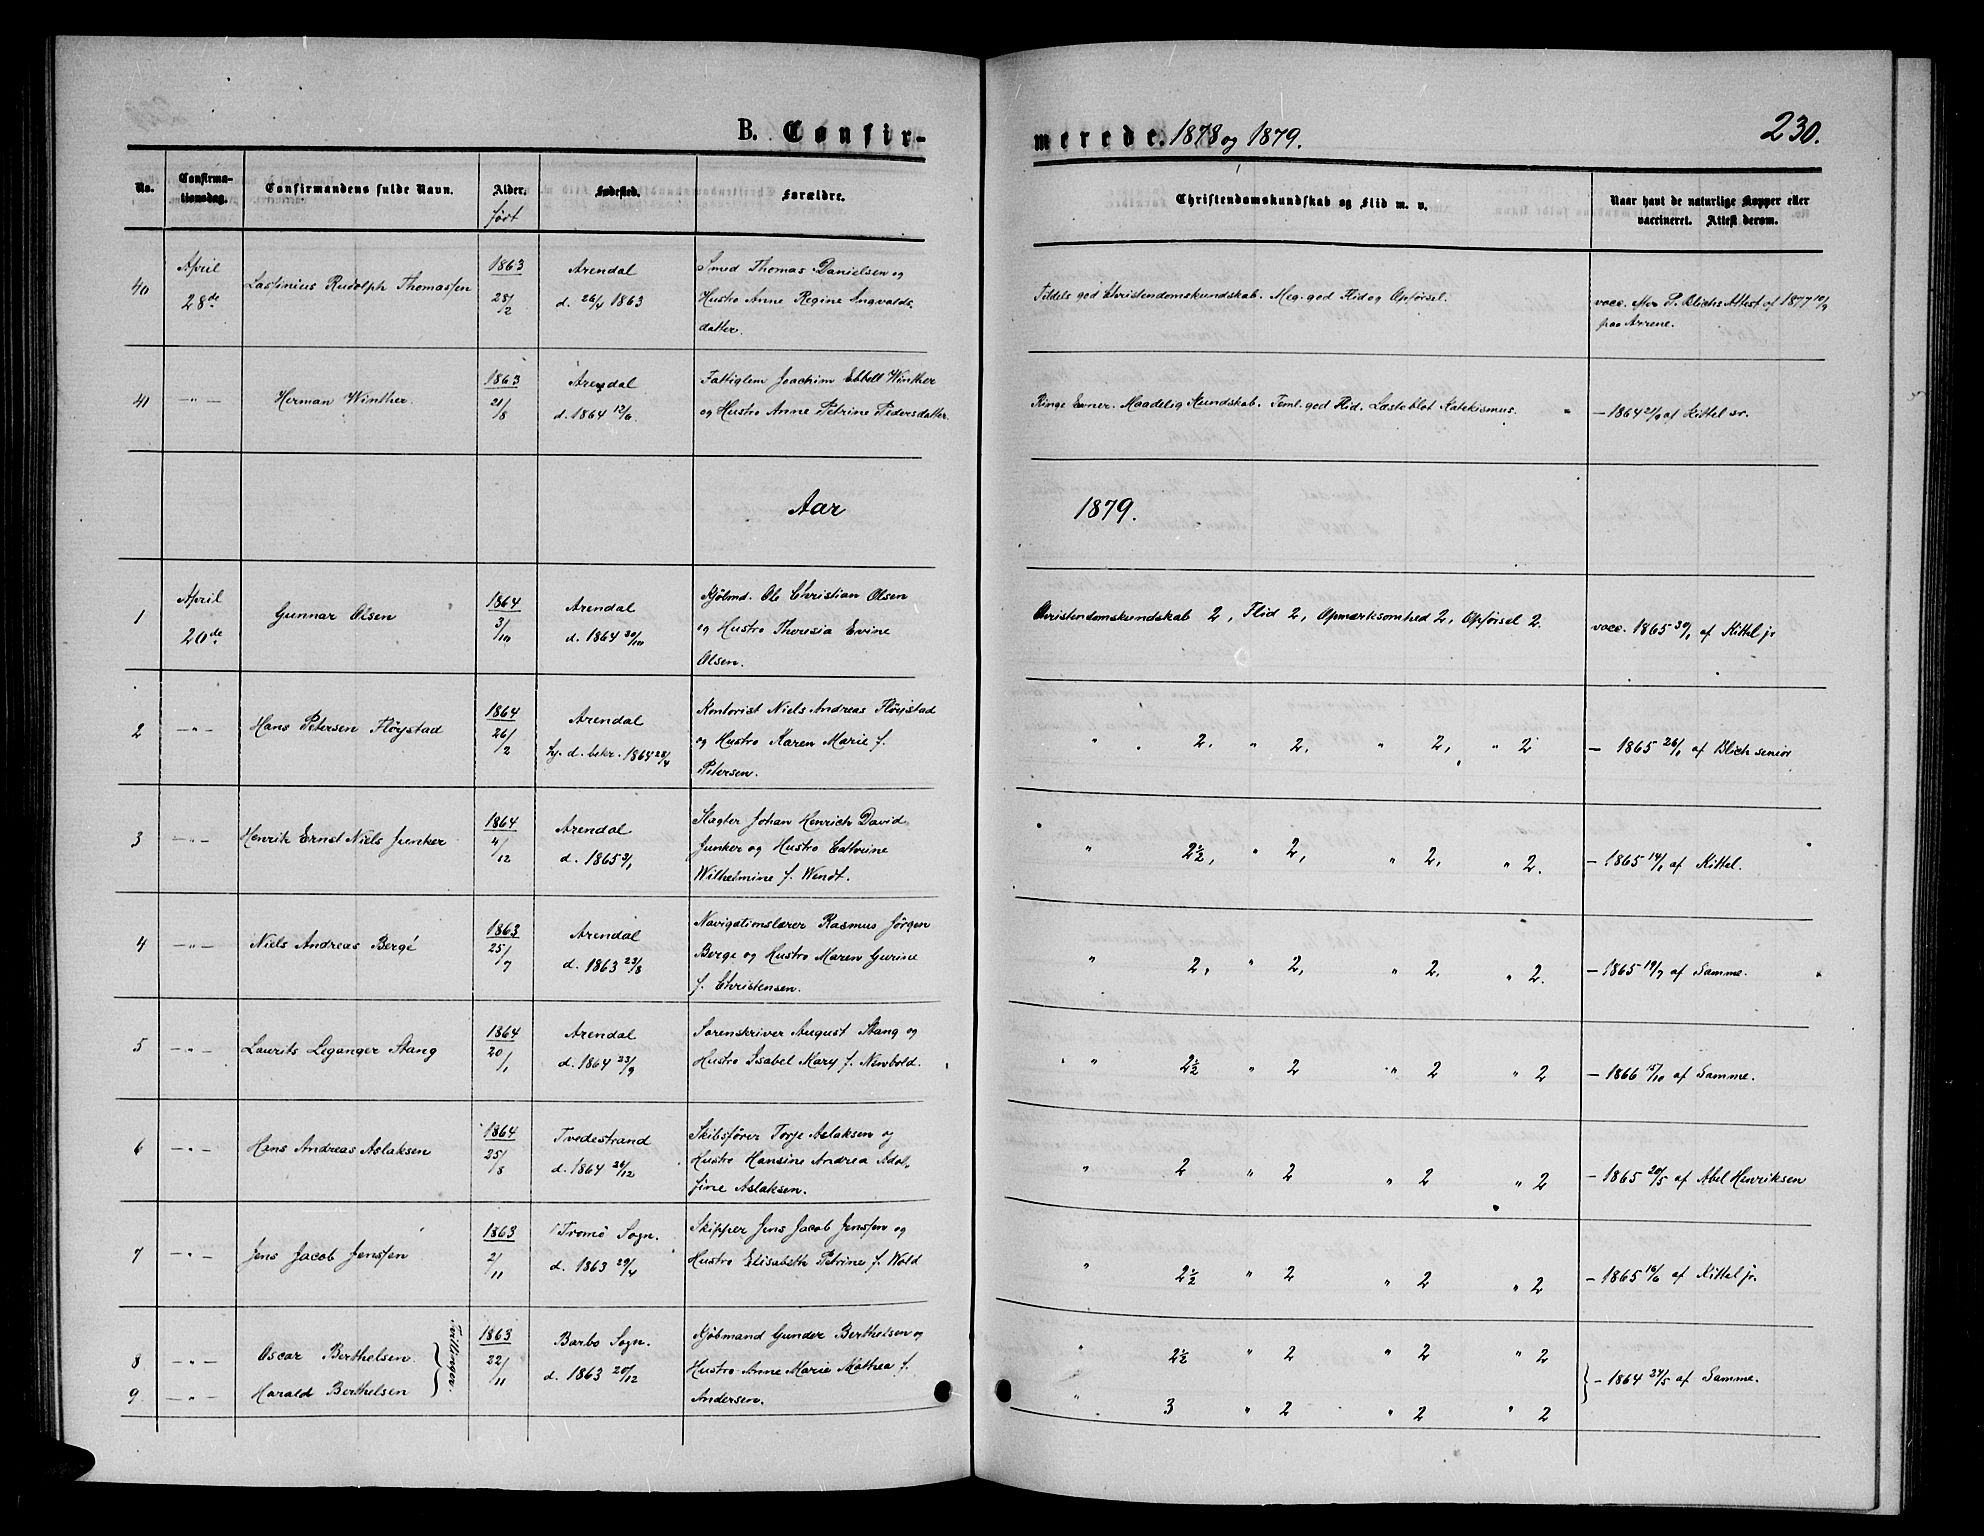 B. Confir-
merede. 1878 og 1879.
230.
No.
Confirma-
tionsdag.
Confirmandens fulde Navn.
Alder.
født
Fødested.
Forældre.
Christendomskundskab og Flid m. v.
Naar havt de naturlige Kopper eller
vaccineret. Attest derom.
40
April
28de
Lastinius Rudolph Thomassen
1863
28/2
Arendal
d. 26/4 1863
Smed Thomas Danielsen og
Hustro Anne Regine Ingvalds
datter.
Tildels god Christendomskundskab. Meg. god Flid og Opførsel.
vacc. P. Blichs Attest af 1877 10/9
paa Arrene.
41
—"—
Herman Winther.
1863
21/8
Arendal
d. 1864 12/6.
Fattiglem Joachim Ebbell Winther
og Hustro Anne Petrine Pedersdatter.
Ringe Evner. Maadelig Kundskab. Teml. god Flid. Læste blot Katekismus.
— 1864 21/9 af Kittel sr.
Aar
1879.
1
April
20de
Gunnar Olsen
1864
3/10
Arendal
d. 1864 30/10
Kjøbmd. Ole Christian Olsen
og Hustro Theresia Evine
Olsen.
Christendomskundskab 2, Flid 2, Opmærksomhed 2, Opførsel 2.
vacc. 1865 30/1 af Kittel jr
2
—"—
Hans Petersen Fløystad
1864
26/2
Arendal
hj. d. bekr. 1864 28/4
Kontorist Niels Andreas Fløystad
og Hustro Karen Marie f.
Petersen.
" 2, " 2, " 2, " 2
— 1865 26/1 af Blich senior
3
—"—
Henrik Ernst Niels Junker
1864
4/12
Arendal
d. 1865 3/1
Slagter Johan Henrich David
Junker og Hustro Cathrine
Wilhelmine f. Wendt.
" 2½, " 2, " 2, " 2.
— 1865 14/1 af Kittel.
4
—"—
Niels Andreas Bergé
1863
25/7
Arendal
d. 1863 23/8
Navigationslærer Rasmus Jörgen
Berge og Hustro Maren Gurine
f. Christensen.
" 2, " 2, " 2, " 2.
— 1865 19/7 af Samme.
5
—"—
Laurits Leganger Stang
1864
20/1
Arendal
d. 1864 23/9
Sorenskriver August Stang og
Hustro Isabel Mary f. Newbold.
" 2½ " 2 " 2 " 2
— 1866 15/10 af Samme.
6
—"—
Hans Andreas Aslaksen
1864
25/8
Tvedestrand
d. 1864 26/12
Skibsfører Torje Aslaksen og
Hustro Hansine Andrea Adol-
fine Aslaksen.
" 2 " 2 " 2 " 2
— 1865 20/5 af Abel Henriksen
7
—"—
Jens Jacob Jenssen
1863
2/11
Tromö Sogn.
d. 1863 29/4
Skipper Jens Jacob Jenssen og
Hustro Elisabeth Petrine f. Wold
" 2½ " 2 " 2 " 2
— 1865 16/6 af Kittel jr.
8
—"—
Oscar Berthelsen
Tvillinger.
1863
22/11
Barbo Sogn.
d. 1863 20/12
Kjøbmand Gunder Berthelsen og
Hustro Anne Marie Mathea f.
Andersen.
" 2½ " 2 " 2 " 2
— 1864 24/5 af Samme.
9
—"—
Harald Berthelsen
" 3 " 2 " 2 " 2